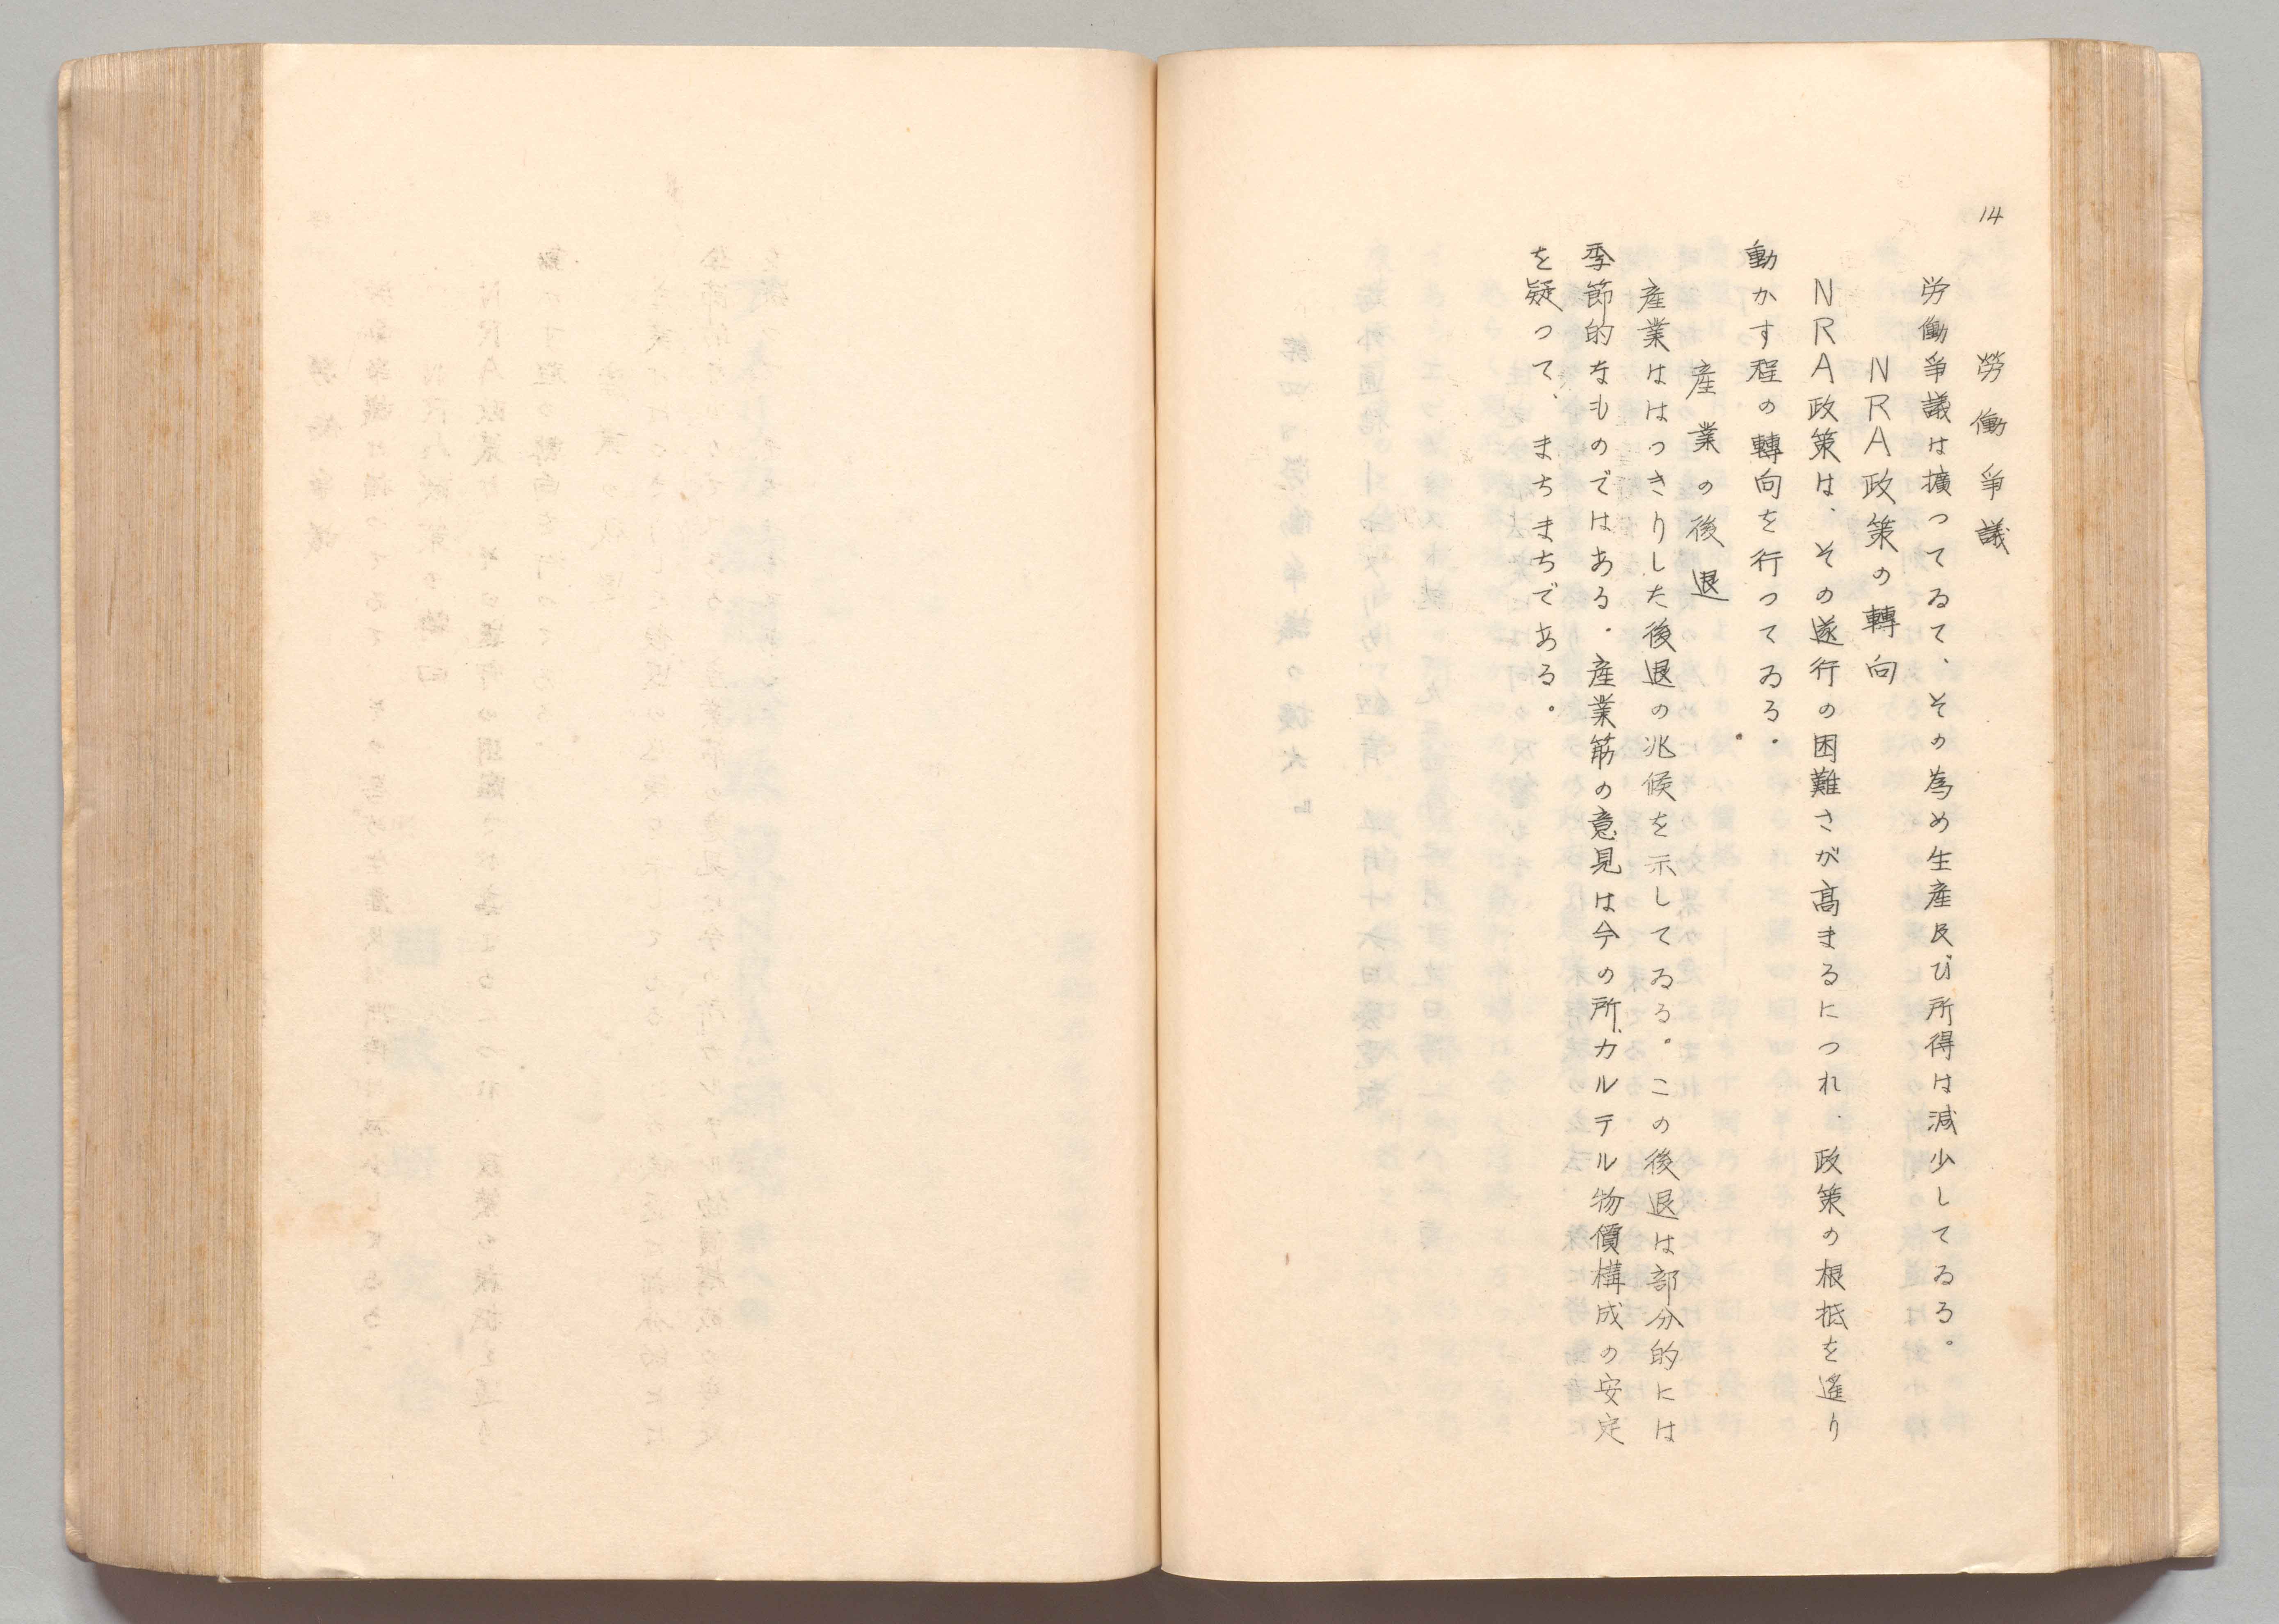 14
勞働爭議
労働爭議は擴つてゐて、その為め生産及び所得は減少してゐる。
NRA政策の轉向
NRA政策は、その遂行の困難さが高まるにつれ、政策の根抵を遥り
動かす程の轉向を行つてゐる.
産業の後退
産業ははつきりした後退の兆候を示してゐる。この後退は部分的には
季節的なものではある.産業筋の意見は今の所、カルテル物價構成の安定
を疑つて、まちまちである。